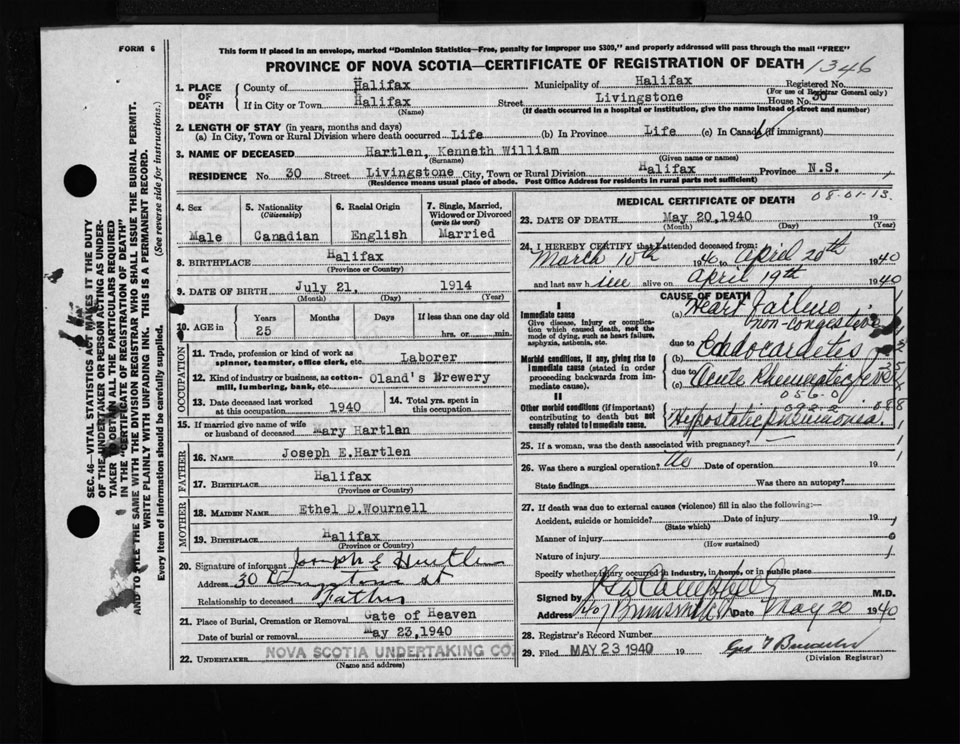 FORM 6
This form if placed in an envelope, marked "Dominion Statistics—Free, penalty for improper use $300," and properly addressed will pass through the mail "FREE"
PROVINCE OF NOVA SCOTIA—CERTIFICATE OF REGISTRATION OF DEATH 1346
1. PLACE OF DEATH
County of Halifax Municipality of Halifax Registered No.
(For use of Registrar General only)
If in City or Town Halifax Street Livingstone House No. 30
(Name) (If death occurred in a hospital or institution, give the name instead of street and number)
2. LENGTH OF STAY (in years, months and days)
(a) In City, Town or Rural Division where death occurred Life (b) In Province Life (c) In Canada (if immigrant)
3. NAME OF DECEASED Hartlen, Kenneth William
(Surname) (Given name or names)
RESIDENCE No. 30 Street Livingstone City, Town or Rural Division Halifax Province N.S.
(Residence means usual place of abode. Post Office Address for residents in rural parts not sufficient)
4. Sex
Male
5. Nationality (Citizenship)
Canadian
6. Racial Origin
English
7. Single, Married, Widowed or Divorced (write the word)
Married
8. BIRTHPLACE Halifax
(Province or Country)
9. DATE OF BIRTH July 21, 1914
(Month) (Day) (Year)
10. AGE in Years Months Days If less than one day
25 hrs. or min.
OCCUPATION
11. Trade, profession or kind of work as spinner, teamster, office clerk, etc. Laborer
12. Kind of industry or business, as cotton-mill, lumbering, bank, etc. Oland's Brewery
13. Date deceased last worked at this occupation 1940
14. Total yrs. spent in this occupation
15. If married give name of wife or husband of deceased Mary Hartlen
FATHER
16. Name Joseph E.Hartlen
17. Birthplace Halifax
(Province or Country)
MOTHER
18. Maiden Name Ethel D.Wournell
19. Birthplace Halifax
(Province or Country)
20. Signature of informant Joseph E Hartlen
Address 30 Livingstone St
Relationship to deceased Father
21. Place of Burial, Cremation or Removal Gate of Heaven
Date of burial or removal May 23,1940
22. UNDERTAKER NOVA SCOTIA UNDERTAKING CO.
(Name and address)
MEDICAL CERTIFICATE OF DEATH 08-01-13
23. DATE OF DEATH May 20,1940 19
(Month) (Day) (Year)
24. I HEREBY CERTIFY that I attended deceased from:
March 10th 1940 to April 20th 1940
and last saw him alive on April 19th 1940
CAUSE OF DEATH
I
Immediate cause
Give disease, injury or complication which caused death, not the mode of dying, such as heart failure, asphyxia, asthenia, etc.
(a) Heart Failure
non-congestive
due to
Morbid conditions, if any, giving rise to immediate cause (stated in order proceeding backwards from immediate cause).
(b) Endocarditis
due to
(c) Acute Rheumatic fever
056.0
II
Other morbid conditions (if important) contributing to death but not causally related to immediate cause.
092-2 088
Hypostatic pneumonia.
25. If a woman, was the death associated with pregnancy?
26. Was there a surgical operation? No Date of operation 19
State findings Was there an autopsy?
27. If death was due to external causes (violence) fill in also the following:—
Accident, suicide or homicide? Date of injury 19
(State which)
Manner of injury
(How sustained)
Nature of injury
Specify whether injury occurred in Industry, in home, or in public place
Signed by M.D.
Address Date May 20 1940
28. Registrar's Record Number
29. Filed MAY 23 1940 19
(Division Registrar)
SEC. 46—VITAL STATISTICS ACT MAKES IT THE DUTY
OF THE UNDERTAKER OR PERSON ACTING AS UNDER-
TAKER TO OBTAIN ALL THE PARTICULARS REQUIRED
IN THE "CERTIFICATE OF REGISTRATION OF DEATH"
AND TO FILE THE SAME WITH THE DIVISION REGISTRAR WHO SHALL ISSUE THE BURIAL PERMIT.
WRITE PLAINLY WITH UNFADING INK. THIS IS A PERMANENT RECORD.
Every item of information should be carefully supplied. (See reverse side for instructions.)